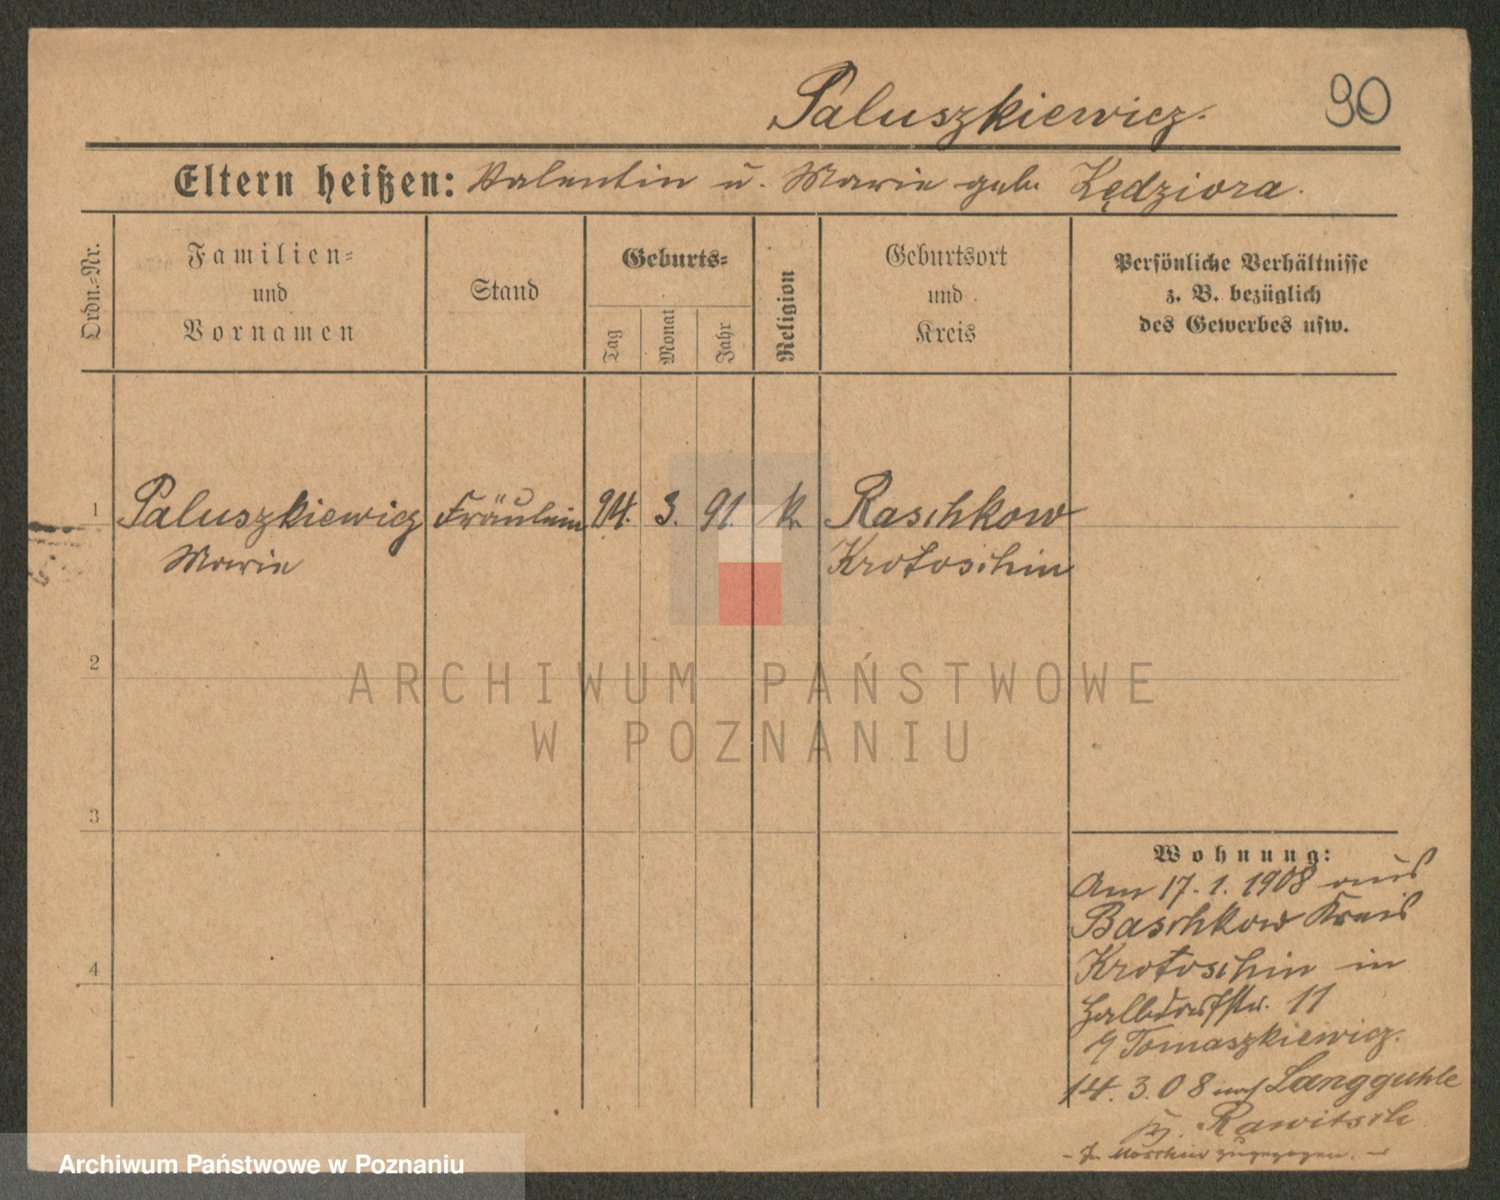 Paluszkiewicz. 90
Eltern heißen: Valentin u. Marie geb. Kędziora.
Ordn.-Nr.
Familien-
und
Vornamen
Stand
Geburts-
Tag
Monat
Jahr
Religion
Geburtsort
und
Kreis
Persönliche Verhältnisse
z. B. bezüglich
des Gewerbes usw.
1 Paluszkiewicz Fräulein 3. 91. k. Raschkow
Marie Krotoschin
2
3
4
Wohnung:
Am 17. 1. 1908 aus
Baschkow Kreis
Krotoschin in
Halbdorfstr. 11
Tomaszkiewicz.
14. 3. 08 nach Langguhle
Rawitsch
zugezogen.
ARCHIWUM PAŃSTWOWE
W POZNANIU
Archiwum Państwowe w Poznaniu